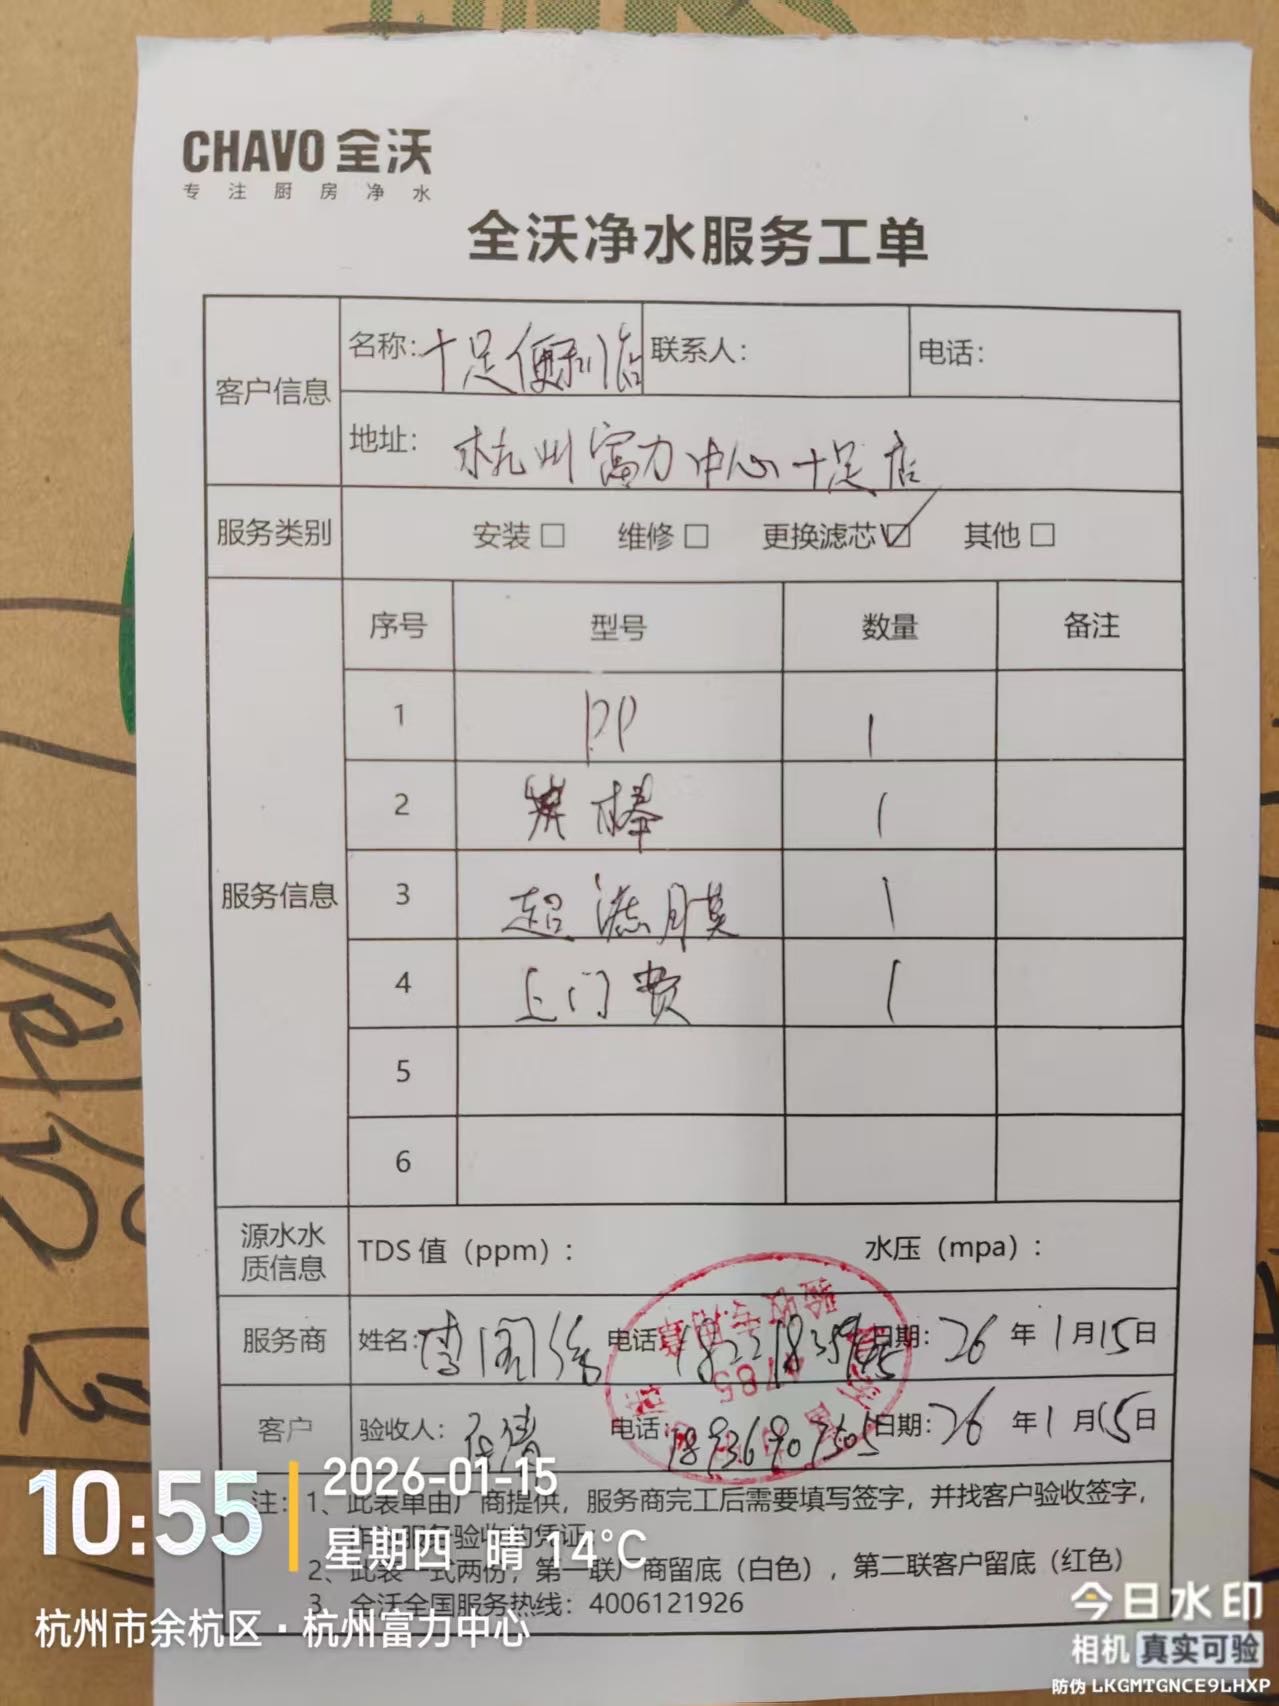 CHAVO 全沃
专注厨房净水
全沃净水服务工单
客户信息 名称: 十足便利店 联系人: 电话:
地址: 杭州富力中心十足店
服务类别 安装□ 维修□ 更换滤芯☑ 其他□
服务信息 序号 型号 数量 备注
1 PP 1
2 炭棒 1
3 超滤膜 1
4 上门费 1
5
6
源水水质信息 TDS 值（ppm）: 水压（mpa）:
服务商 姓名: 电话: 日期: 26 年 1 月 15 日
客户 验收人: 电话: 日期: 26 年 1 月 15 日
注: 1、此表单由厂商提供，服务商完工后需要填写签字，并找客户验收签字，
服务验收的凭证
2、此表一式两份，第一联厂商留底（白色），第二联客户留底（红色）
3、全沃全国服务热线: 4006121926
验收专用章
1785
10:55
2026-01-15
星期四 晴 14°C
杭州市余杭区·杭州富力中心
今日水印
相机 真实可验
防伪 LKGMTGNCE9LHXP